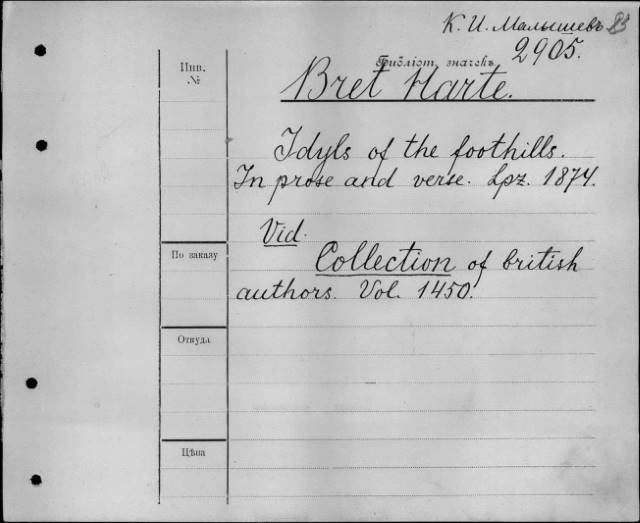 К. И. Малышевъ 83
Инв.
№
Библіот. значекъ
2905.
Bret Harte.
Idyls of the foothills.
In prose and verse. Lpz. 1874.
Vid.
Collection of british
authors. Vol. 1450.
По заказу
Откуда
Цѣна